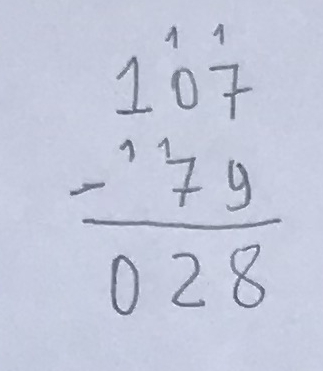 1 1
107
1 1
- 79
028